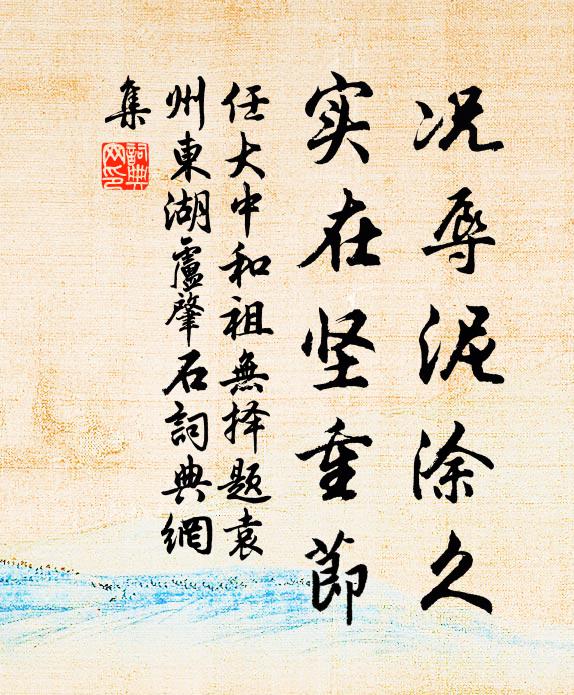 况辱泥涂久
实在坚重節
任大中和祖無择题袁
州東湖盧肇石詞典網
集
詞典網印